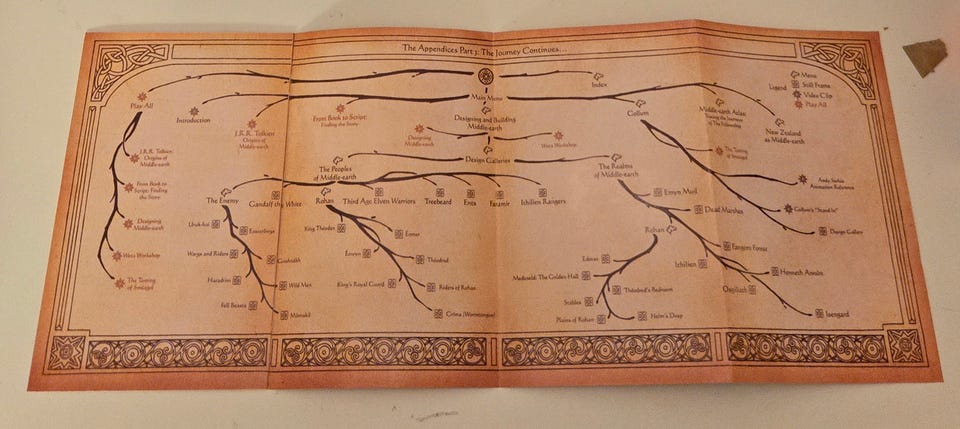 The Appendices Part 3: The Journey Continues...
Index
Menu
Legend
Still Frame
Video Clip
Play All
Play All
Main Menu
Introduction
J.R.R. Tolkien
Origins of
Middle-earth
From Book to Script:
Finding the Story
Designing and Building
Middle-earth
Gollum
Middle-earth Atlas:
Tracing the Journeys
of The Fellowship
New Zealand
as Middle-earth
Designing
Middle-earth
Weta Workshop
The Taming
of Sméagol
J.R.R. Tolkien:
Origins of
Middle-earth
Design Galleries
The Peoples
of Middle-earth
The Realms
of Middle-earth
Andy Serkis
Animation Reference
From Book to
Script: Finding
the Story
The Enemy
Gandalf the White
Rohan
Third Age Elven Warriors
Treebeard
Ents
Faramir
Ithilien Rangers
Emyn Muil
Dead Marshes
Gollum's "Stand In"
Designing
Middle-earth
Uruk-hai
Easterlings
King Théoden
Éomer
Rohan
Design Gallery
Weta Workshop
Wargs and Riders
Grishnákh
Éowyn
Théodred
Edoras
Fangorn Forest
Ithilien
The Taming
of Sméagol
Haradrim
Wild Men
King's Royal Guard
Riders of Rohan
Meduseld: The Golden Hall
Théodred's Bedroom
Henneth Annûn
Osgiliath
Fell Beasts
Mûmakil
Gríma (Wormtongue)
Stables
Plains of Rohan
Helm's Deep
Isengard